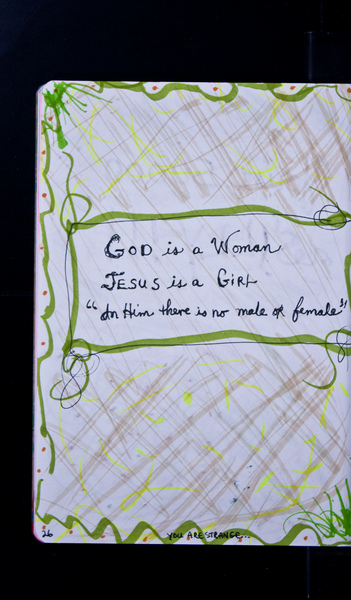 GOD is a Woman
JESUS is a GIRL
"In Him there is no male or female"
26
YOU ARE STRANGE...